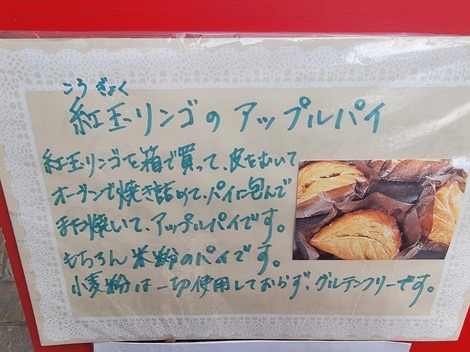 こうぎょく
紅玉リンゴの アップルパイ
紅玉リンゴを箱で買って、皮をむいて
オーブンで焼き詰めて、パイに包んで
また焼いて、アップルパイです。
もちろん 米粉のパイです。
小麦粉は一切使用しておらず、グルテンフリーです。